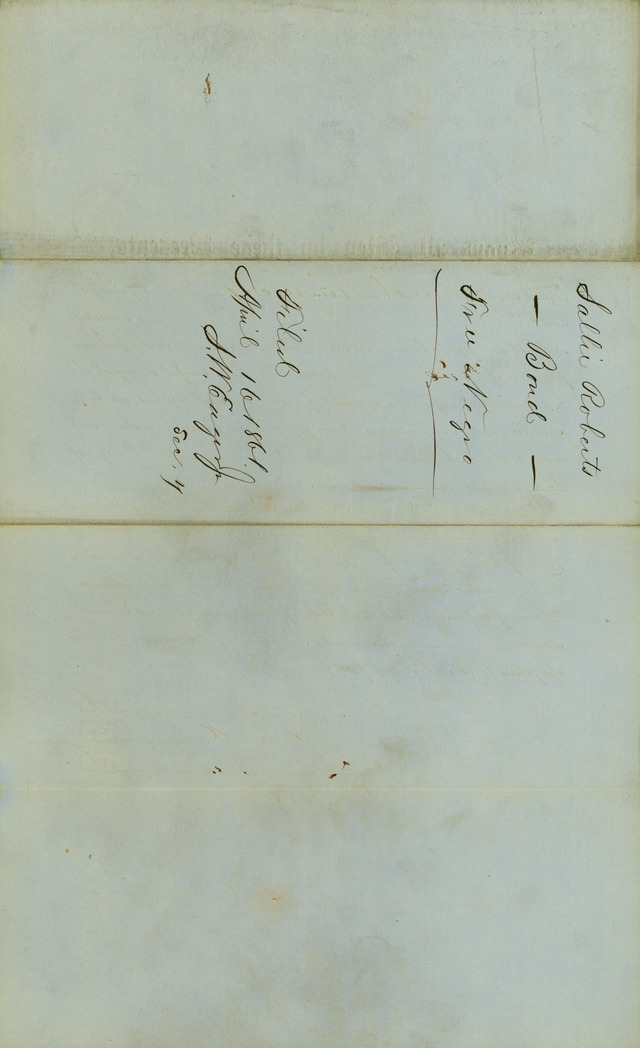 Sallie Roberts
— Bond —
Free Negro
Filed
April 16 1861.
J. W.
Sec. y